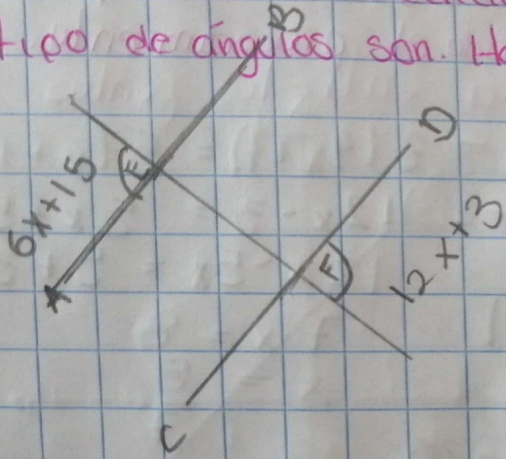 tipo de ángulos son. Ha
B
6x+15
E
D
A
F
12x+3
C